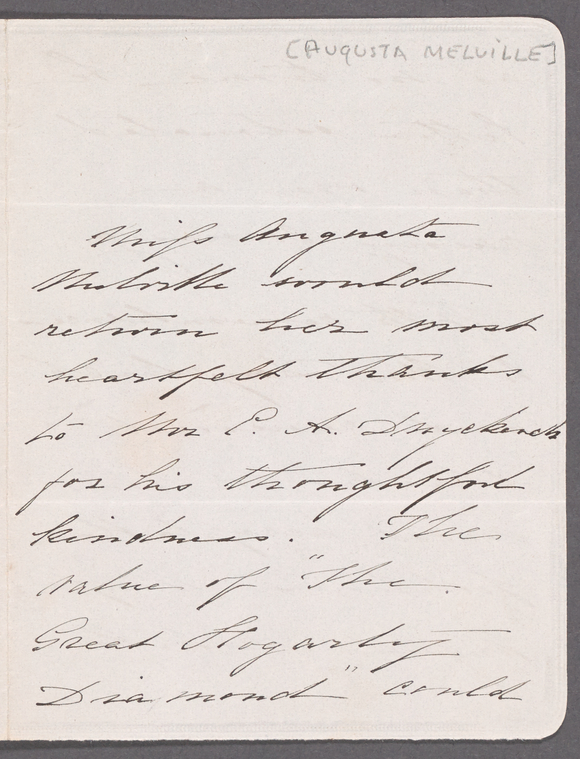 [AUGUSTA MELVILLE]
Miss Augusta
Melville would
return her most
heartfelt thanks
to Mr E. A. Duyckinck
for his thoughtful
kindness. The
value of "The
Great Hogarty
Diamond" could